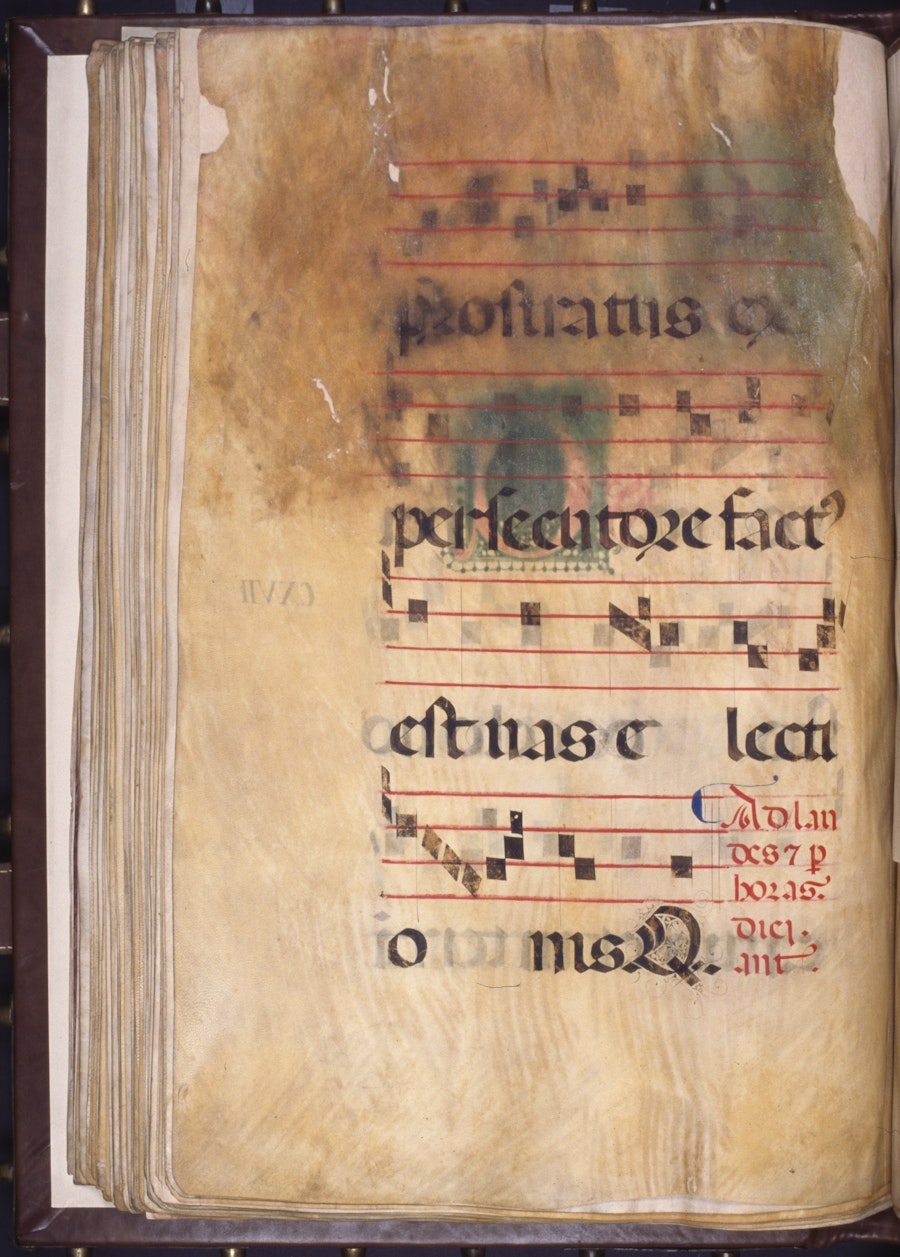 prostratus ex
persecutore fact⁹
est uas e lecti
o nis Q.
Ad lau
des ⁊ p
horas.
dici.
ant.
CXVII